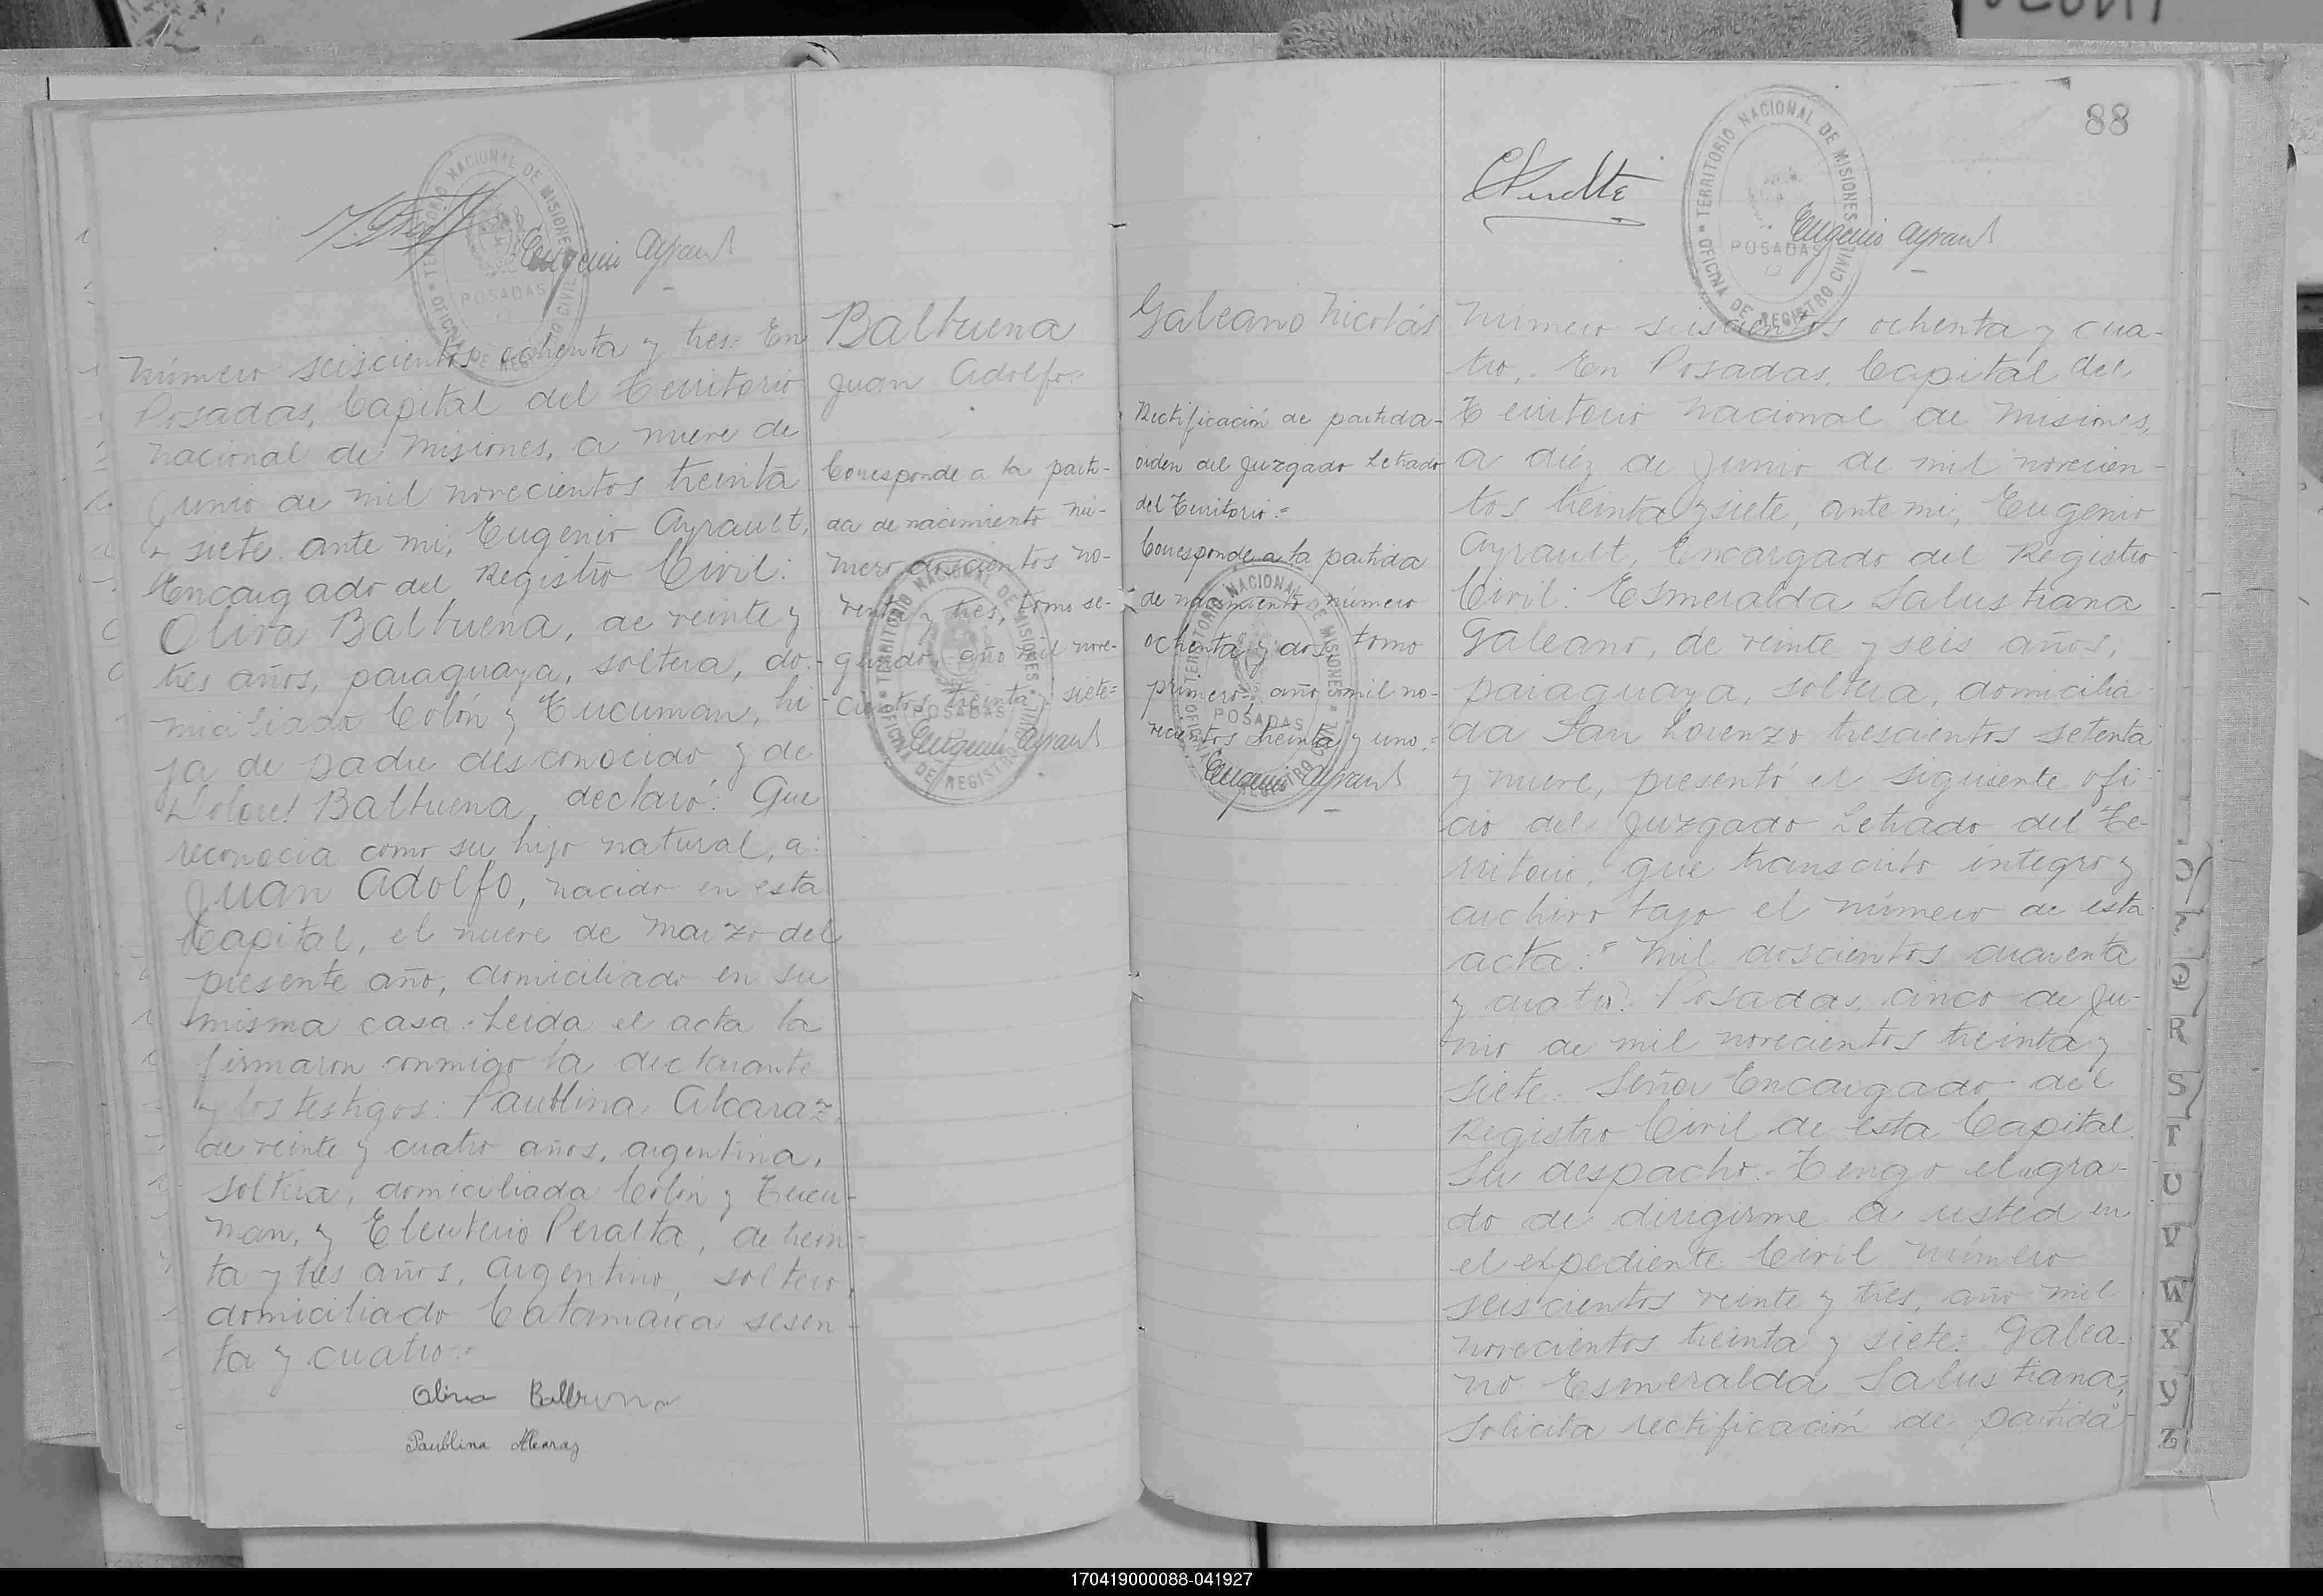 TERRITORIO NACIONAL DE MISIONES
OFICINA DE REGISTRO CIVIL
POSADAS
Eugenio Ayrault
Número seiscientos ochenta y tres = En
Posadas, Capital del Territorio
Nacional de Misiones, a nueve de
Junio de mil novecientos treinta
y siete, ante mi, Eugenio Ayrault,
Encargado del Registro Civil:
Oliva Balbuena, de veinte y
tres años, paraguaya, soltera, do-
miciliada Colón y Tucuman, hi-
ja de padre desconocido y de
Dolores Balbuena, declaró: Que
reconocia como su hijo natural, a:
Juan Adolfo, nacido en esta
Capital, el nueve de Marzo del
presente año, domiciliado en su
misma casa. Leida el acta la
firmaron conmigo la declarante
y los testigos: Paublina Alcaraz,
de veinte y cuatro años, argentina,
soltera, domiciliada Colón y Tucu-
man, y Eleuterio Peralta, de trein-
ta y tres años, Argentino, soltero,
domiciliado Catamarca sesen-
ta y cuatro.=
Oliva Balbuena
Paublina Alcaraz
Balbuena
Juan Adolfo=
Corresponde a la parti-
da de nacimiento nú-
mero doscientos no-
venta y tres, tomo se-
gundo, año mil nove-
cientos treinta y siete=
Eugenio Ayrault
TERRITORIO NACIONAL DE MISIONES
OFICINA DE REGISTRO CIVIL
POSADAS
88
TERRITORIO NACIONAL DE MISIONES
OFICINA DE REGISTRO CIVIL
POSADAS
Eugenio Ayrault
Galeano Nicolás
Rectificación de partida-
orden del Juzgado Letrado
del Territorio.=
Corresponde a la partida
de nacimiento número
ochenta y dos, tomo
primero, año mil no-
vecientos treinta y uno.=
Eugenio Ayrault
TERRITORIO NACIONAL DE MISIONES
OFICINA DE REGISTRO CIVIL
POSADAS
Número seiscientos ochenta y cua-
tro.- En Posadas, Capital del
Territorio Nacional de Misiones,
a diéz de Junio de mil novecien-
tos treinta y siete, ante mi, Eugenio
Ayrault, Encargado del Registro
Civil: Esmeralda Salustiana
Galeano, de veinte y seis años,
paraguaya, soltera, domicilia-
da San Lorenzo trescientos setenta
y nueve, presentó el siguiente ofi-
cio del Juzgado Letrado del Te-
rritorio, que transcribo integro y
archivo bajo el número de esta
acta: "Mil doscientos cuarenta
y cuatro.- Posadas, cinco de Ju-
nio de mil novecientos treinta y
siete. Señor Encargado del
Registro Civil de esta Capital.
Su despacho.- Tengo el agra-
do de dirigirme a usted en
el expediente Civil número
seiscientos veinte y tres, año mil
novecientos treinta y siete: Galea-
no Esmeralda Salustiana,
solicita rectificación de partida
R
S
T
U
V
W
X
Y
Z
170419000088-041927